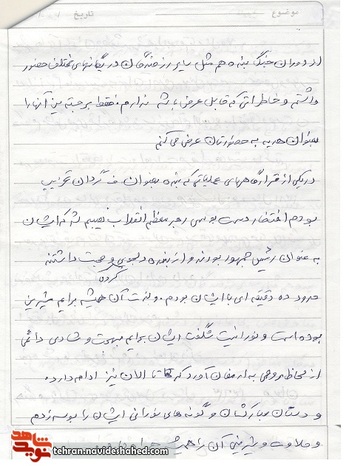 موضوع
تاریخ
از دوران جنگ بنده هم مثل سایر رزمندگان در یگانهای مختلف حضور
داشتم و خاطراتی که قابل عرض باشد ندارم، فقط برجسته‌ترین آنها را
بعنوان هدیه به حضورتان عرض می‌کنم
در یکی از قرارگاههای عملیاتی که بنده بعنوان گردان تخریب
بودم افتخار دست بوسی رهبر معظم انقلاب نصیبم شد که ایشان
به عنوان رئیس جمهور بودند و از بنده دلجویی و محبت داشتند
کرده
حدود ده دقیقه‌ای با ایشان بودم. و لذت آن همیشه برایم شیرین
بوده است و نورانیت شگفت ایشان برایم بهجت و شادی دائمی
از لحاظ روحی به ارمغان آورد که تا الان نیز ادامه دارد.
و دستان مبارکشان و گونه‌های نورانی ایشان را بوسه زدم
و حلاوت و شیرینی آن را
نوید شاهد
tehran.navideshahed.com